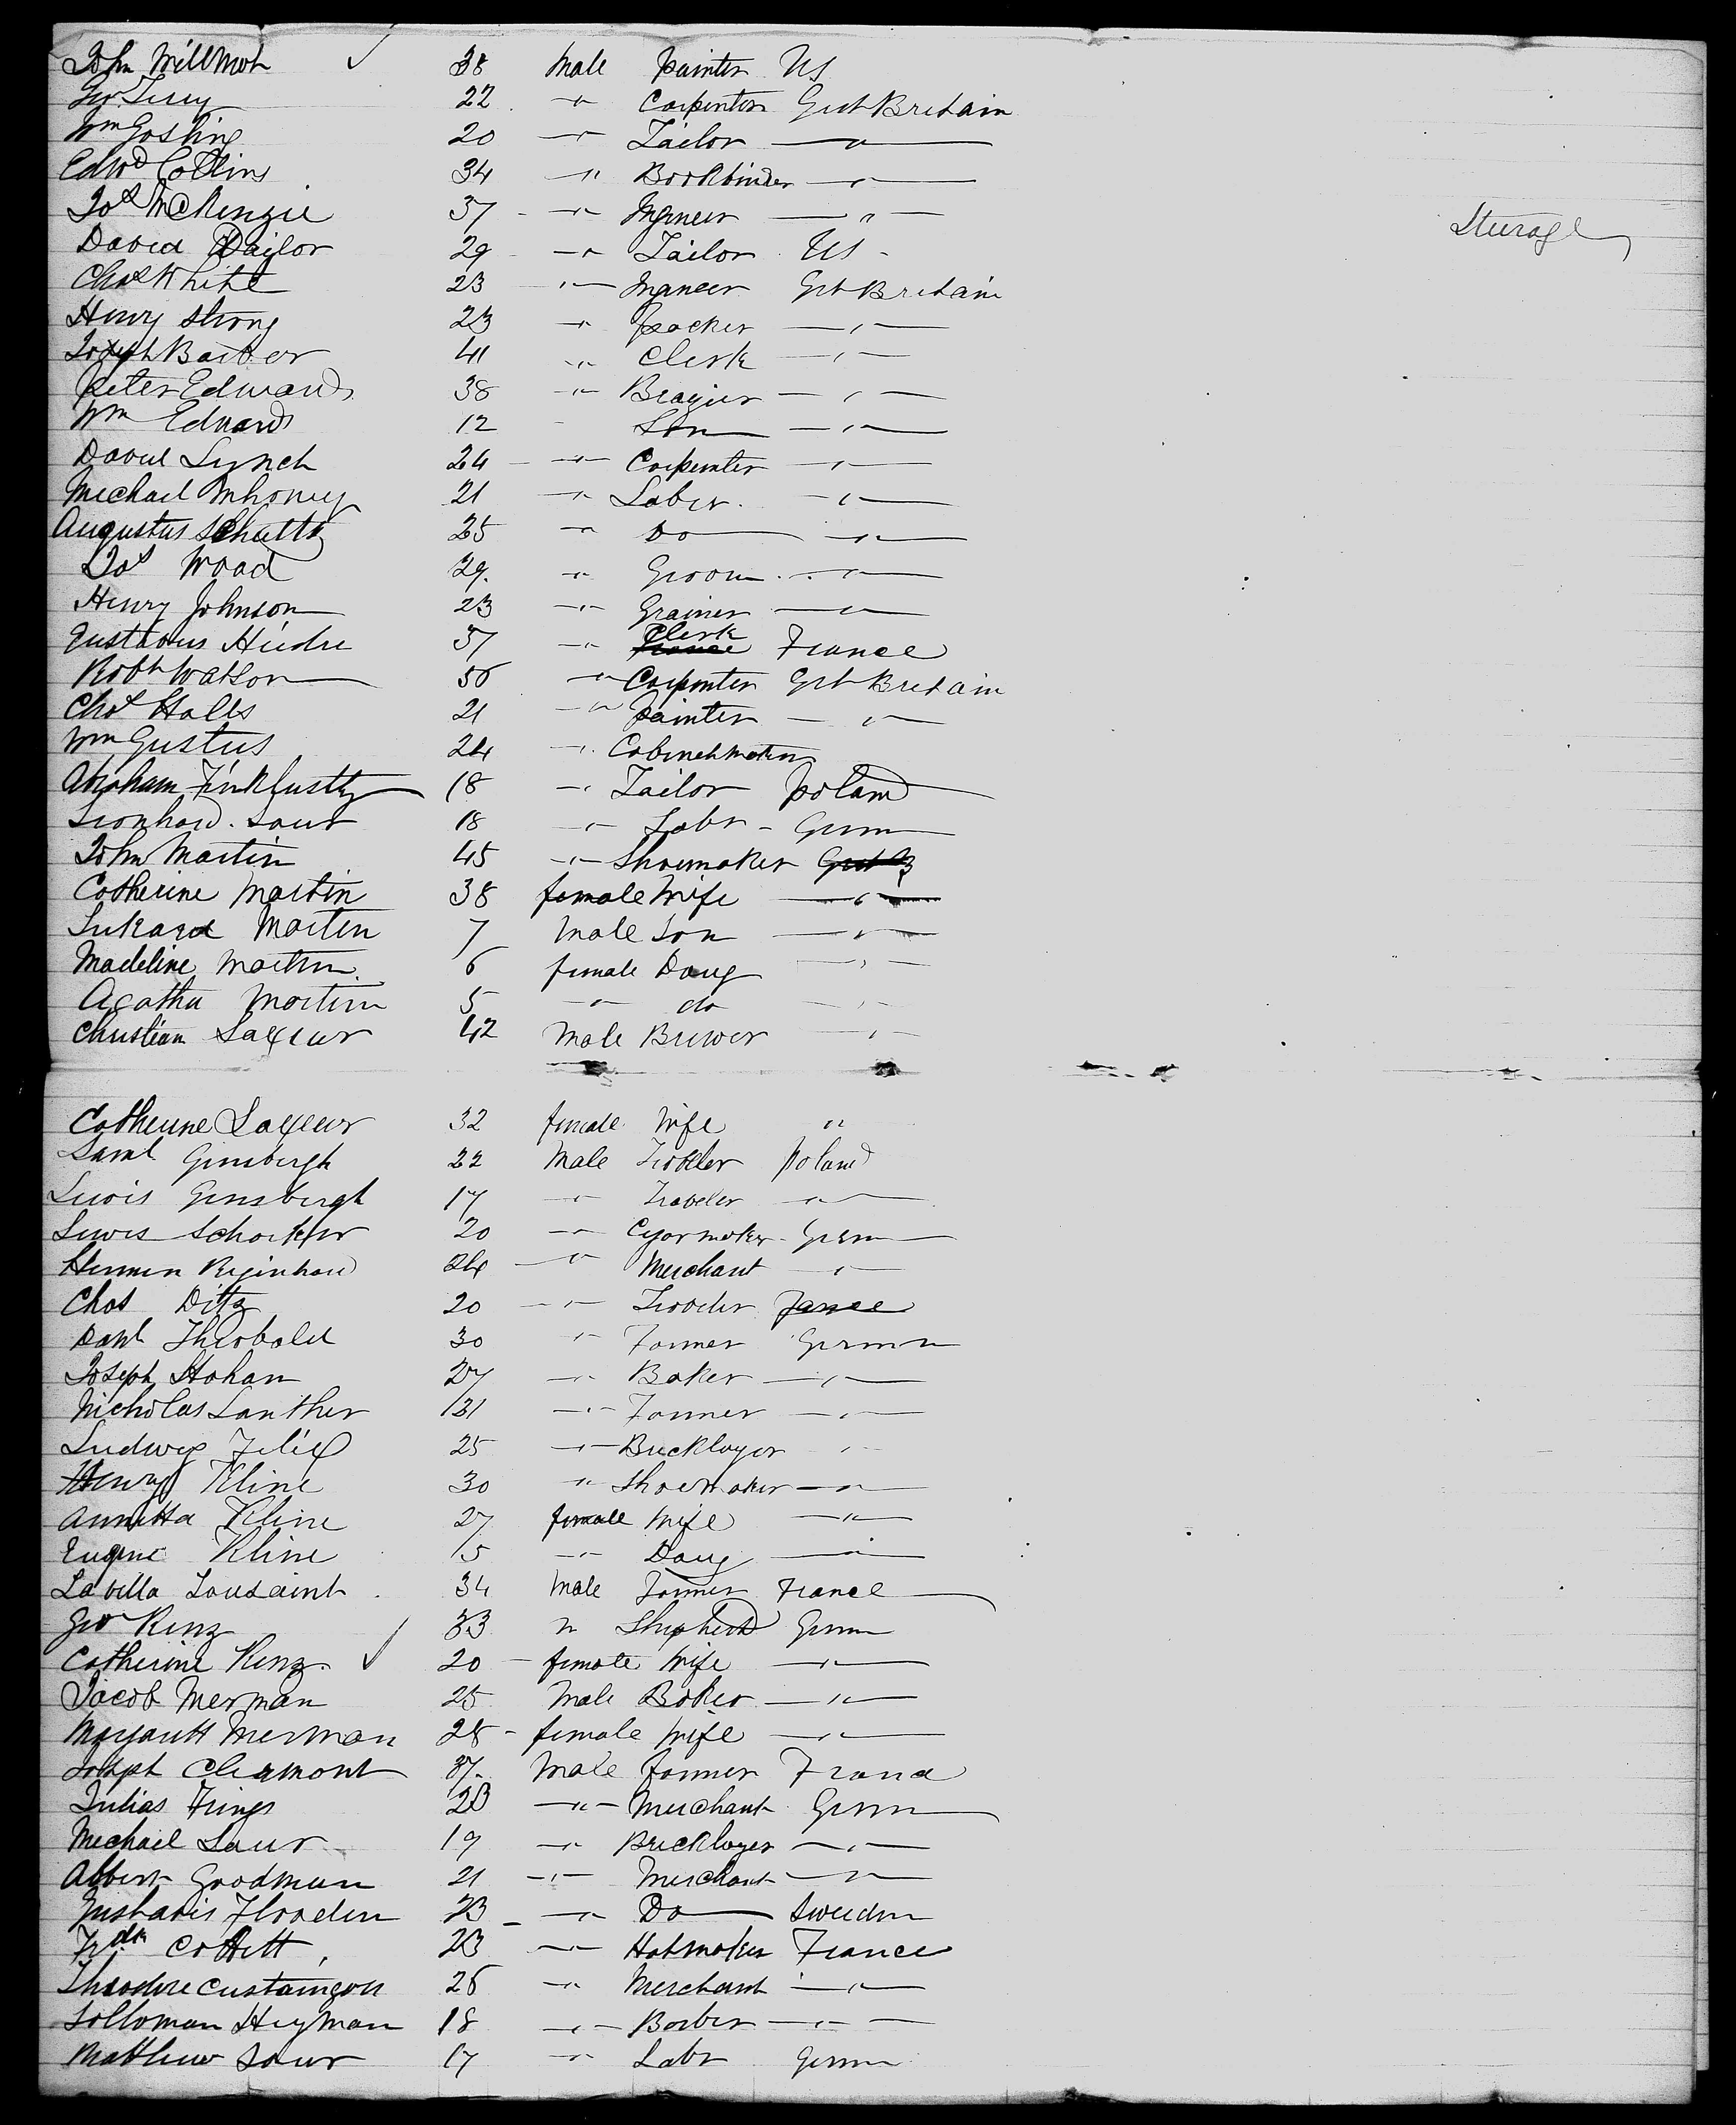 John Willmot ✓ 38 Male Painter US
Geo Terry 22 -"- Carpenter Grt Britain
Wm Gosling 20 -"- Tailor -"-
Edwd Collins 34 -"- Bookbinder -"-
Jos McKenzie 37 -"- Ingineer -"-
Sturage
David Dailor 29 -"- Tailor US -
Chas White 23 -"- Ingineer Grt Britain
Henry Strong 23 -"- packer -"-
Joseph Barber 41 -"- Clerk -"-
Peter Edwards 38 -"- Brazier -"-
Wm Edwards 12 - Son -"-
David Lynch 24 -"- Carpenter -"-
Michael Mhoney 21 -"- Laber -"-
Augustus Schultz 25 -"- Do -"-
Jos Wood 29 -"- Groom -"-
Henry Johnson 23 -"- Grainer -"-
Gustavus 37 -"- Clerk France
Robt Watson 50 -"- Carpenter Grt Britain
Chas Halls 21 -"- Painter -"-
Wm Gustus 24 -"- Cabinetmaker
Abraham 18 -"- Tailor Poland
Leonhard Saur 18 -"- Labr - Germ
John Martin 45 -"- Shoemaker Grt B
Catherine Martin 38 female Wife -"-
Martin 7 Male Son -"-
Madeline Martin 6 female Daug -"-
Agatha Martin 5 -"- do -"-
Christian 42 Male Brewer -"-
Catherine 32 female Wife "
Saml Ginsbergh 22 Male Traveler Poland
Lewis Ginsbergh 17 -"- Traveler -"-
Lewis 20 -"- Cigarmaker - Germ
Hermen 24 -"- Merchant -"-
Chas Ditz 20 -"- Traveler France
Danl Theobald 30 -"- Farmer Germn
Joseph Hohan 27 -"- Baker -"-
Nicholas Lanther 31 -"- Farmer -"-
Ludwig Felix 25 -"- Bricklayer -"-
Henry Kline 30 -"- Shoemaker -"-
Annetta Kline 27 female Wife -"-
Eugene Kline 5 -"- Daug -"-
Lavilla Tousaint 34 Male Farmer France
Geo Kinz 33 " Shepherd Germ
Catherine Kinz ✓ 20 - female Wife -"-
Jacob Merman 25 Male Baker -"-
Margarett Merman 28 - female Wife -"-
Joseph Clermont 37 Male farmer France
Julias Frings 23 -"- Merchant Germ
Michael Saur 19 -"- Bricklayer -"-
Albert Goodman 21 -"- Merchant -"-
Gustavis Floden 23 -"- Do Sweeden
Frdk Cottett 23 -"- Hatmaker France
Theodore 26 -"- Merchant -"-
Solloman Heyman 18 -"- Barber -"-
Matthew Saur 17 -"- Labr Germ